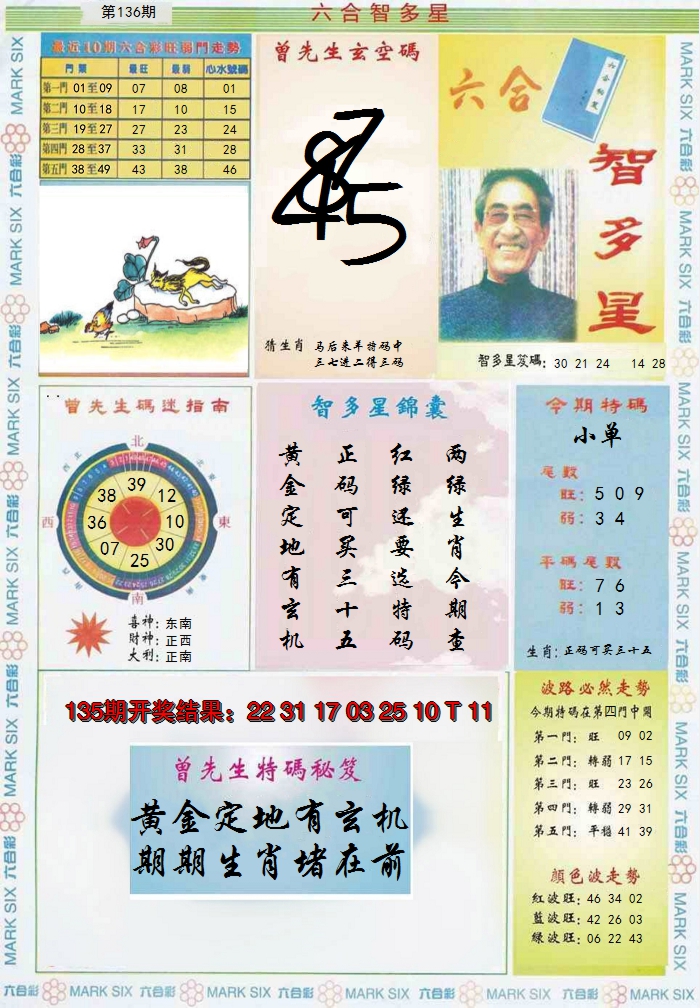 第136期
六合智多星
最近10期六合彩旺弱門走勢
門類 最旺 最弱 心水號碼
第一門 01至09 07 08 01
第二門 10至18 17 10 15
第三門 19至27 27 23 24
第四門 28至37 33 31 28
第五門 38至49 43 38 46
曾先生玄空碼
猜生肖 马后来羊特码中
三七进二得三码
六合
智多星
智多星笈碼: 30 21 24 14 28
曾先生碼迷指南
北
西
東
南
39
12
10
30
25
07
36
38
喜神: 东南
财神: 正西
大利: 正南
智多星錦囊
两绿生肖今期查
红绿还要选特码
正码可买三十五
黄金定地有玄机
今期特碼
小单
尾數
旺: 5 0 9
弱: 3 4
平碼尾數
旺: 7 6
弱: 1 3
生肖: 正码可买三十五
135期开奖结果：22 31 17 03 25 10 T 11
曾先生特碼秘笈
黄金定地有玄机
期期生肖堵在前
波路必然走勢
今期特碼在第四門中開
第一門: 旺 09 02
第二門: 轉弱 17 15
第三門: 旺 23 26
第四門: 轉弱 29 31
第五門: 平穩 41 39
顔色波走勢
紅波旺: 46 34 02
藍波旺: 42 26 03
綠波旺: 06 22 43
六合彩 MARK SIX 六合彩 MARK SIX 六合彩 MARK SIX 六合彩 MARK SIX 六合彩 MARK SIX